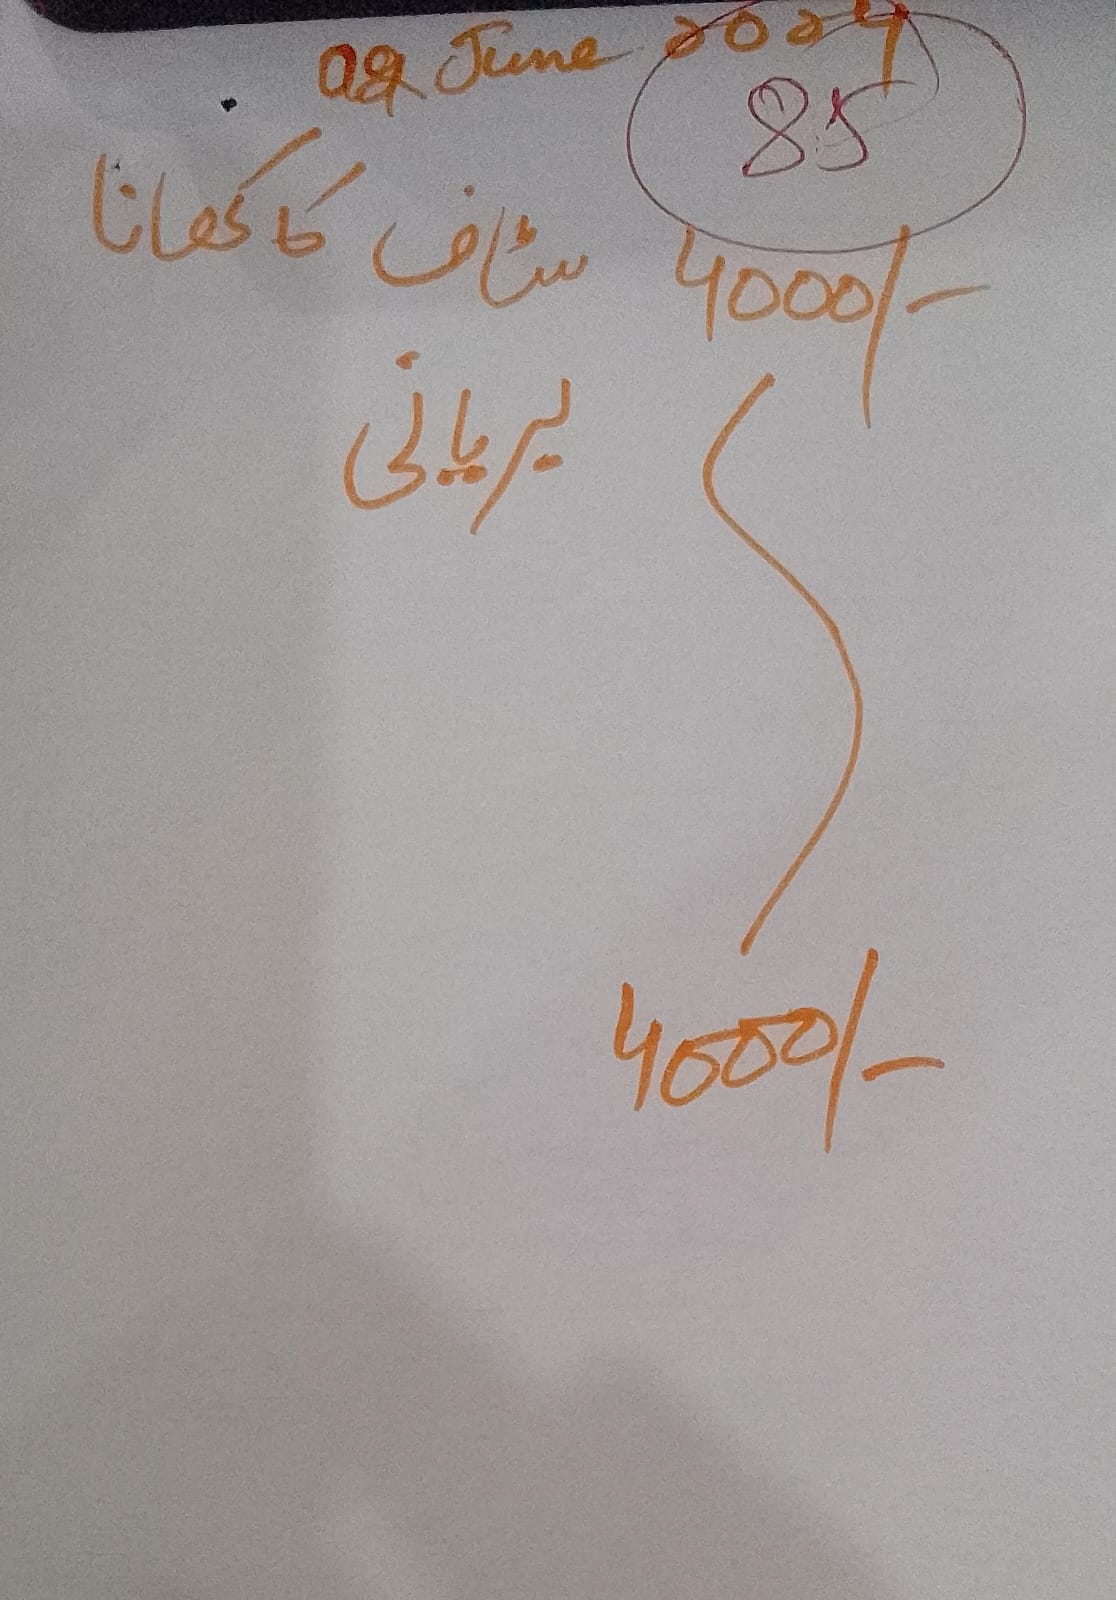 June 2024
85
سٹاف کا کھانا 4000/-
بریانی
4000/-